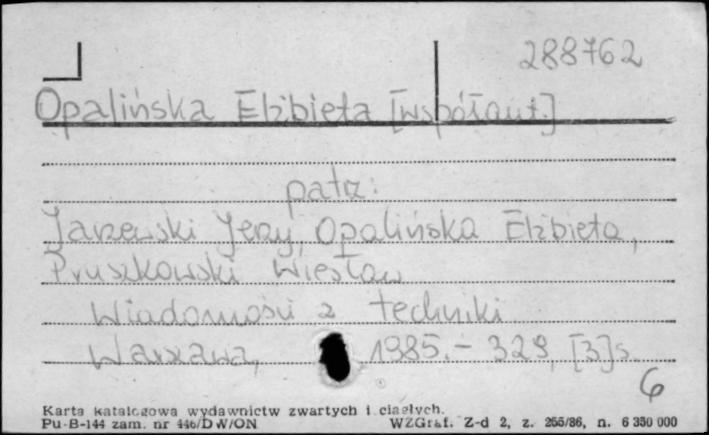 288762
Opalińska Elżbieta [współaut.]
patrz:
Jarzewski Jerzy, Opalińska Elżbieta,
Pruszkowski Wiesław
Wiadomości z techniki
Warszawa, 1985. - 329, [3] s.
6
Karta katalogowa wydawnictw zwartych i ciągłych.
Pu-B-144 zam. nr 446/DW/ON WZGraf. Z-d 2, z. 255/86, n. 6 350 000